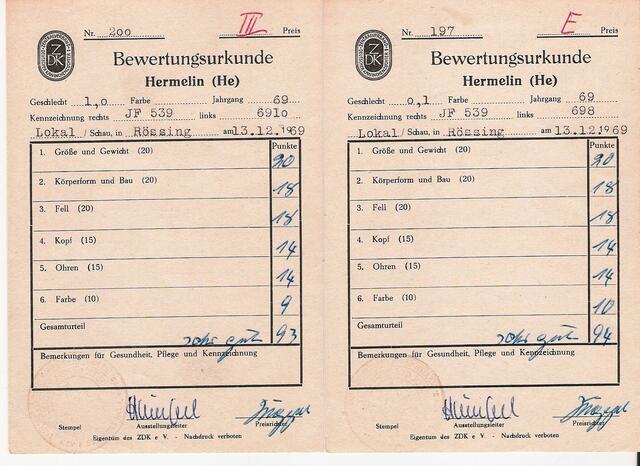 ZDK
Nr. 200 III Preis
Bewertungsurkunde
Hermelin (He)
Geschlecht 1,0 Farbe Jahrgang 69
Kennzeichnung rechts JF 539 links 6910
Lokal / Schau, in Rössing am 13.12.1969
Punkte
1. Größe und Gewicht (20) 20
2. Körperform und Bau (20) 18
3. Fell (20) 18
4. Kopf (15) 14
5. Ohren (15) 14
6. Farbe (10) 9
Gesamturteil sehr gut 93
Bemerkungen für Gesundheit, Pflege und Kennzeichnung
Stempel Ausstellungsleiter Preisrichter
Eigentum des ZDK e V. - Nachdruck verboten
ZDK
Nr. 197 E Preis
Bewertungsurkunde
Hermelin (He)
Geschlecht 0,1 Farbe Jahrgang 69
Kennzeichnung rechts JF 539 links 698
Lokal / Schau, in Rössing am 13.12.1969
Punkte
1. Größe und Gewicht (20) 20
2. Körperform und Bau (20) 18
3. Fell (20) 18
4. Kopf (15) 14
5. Ohren (15) 14
6. Farbe (10) 10
Gesamturteil sehr gut 94
Bemerkungen für Gesundheit, Pflege und Kennzeichnung
Stempel Ausstellungsleiter Preisrichter
Eigentum des ZDK e V. - Nachdruck verboten